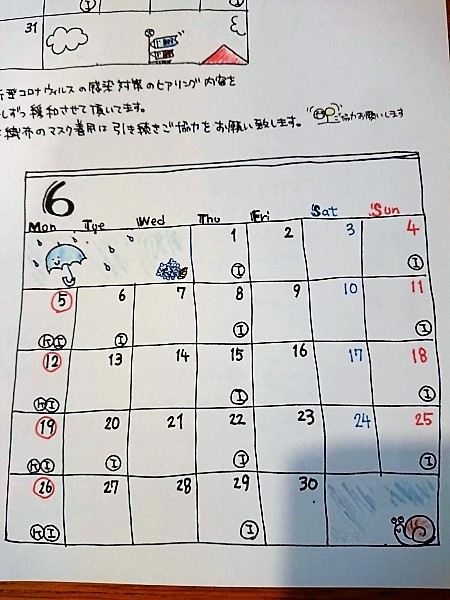 Ⓘ
31
型コロナウィルスの感染対策のヒアリング内容を
しずつ緩和させて頂いてます。
織布のマスク着用は引き続きご協力をお願い致します。 ご協力お願いします
6
Mon Tue Wed Thu Fri Sat Sun
1 2 3 4
Ⓘ Ⓘ
5 6 7 8 9 10 11
Ⓘ Ⓘ Ⓘ Ⓘ
12 13 14 15 16 17 18
Ⓘ Ⓘ Ⓘ
19 20 21 22 23 24 25
Ⓘ Ⓘ Ⓘ Ⓘ
26 27 28 29 30
Ⓘ Ⓘ